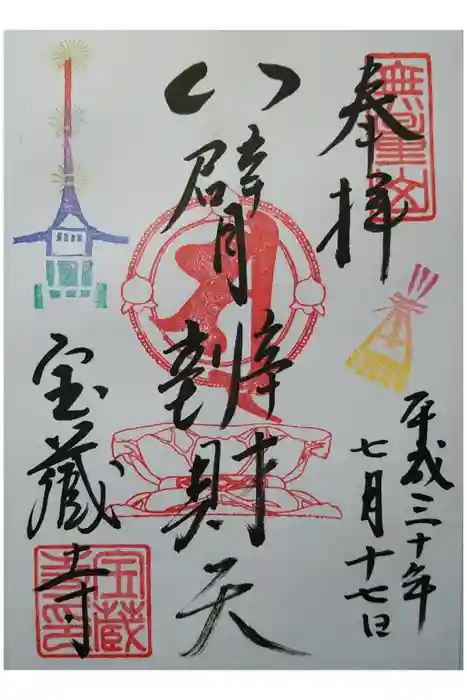 無量山
奉拝
平成三十年
七月十七日
八臂辨財天
宝蔵寺
宝蔵寺印